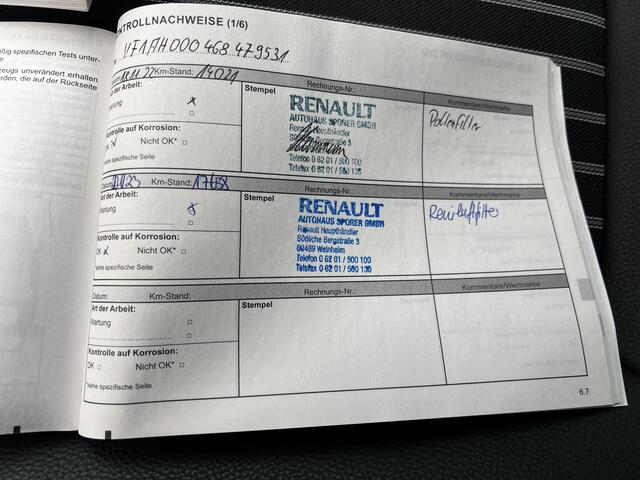 ßig spezifischen Tests unter-
zeugs unverändert erhalten
rden, die auf der Rückseite
KONTROLLNACHWEISE (1/6)
VF1AH000468479531
Datum: 18.11.22 Km-Stand: 14021
Rechnungs-Nr.:
Kommentare/Wertmarke
Art der Arbeit:
Wartung x
Stempel
RENAULT
AUTOHAUS SPORER GMBH
Renault Haupthändler
Südliche Bergstraße 3
Telefon 0 62 01 / 500 100
Telefax 0 62 01 / 560 130
Pollenfilter
Kontrolle auf Korrosion:
OK x Nicht OK* □
*siehe spezifische Seite
Datum: Km-Stand:
Rechnungs-Nr.:
Kommentare/Wertmarke
Art der Arbeit:
Wartung x
Stempel
RENAULT
AUTOHAUS SPORER GMBH
Renault Haupthändler
Südliche Bergstraße 3
69469 Weinheim
Telefon 0 62 01 / 500 100
Telefax 0 62 01 / 560 130
Kontrolle auf Korrosion:
OK x Nicht OK* □
*siehe spezifische Seite
Datum: Km-Stand:
Rechnungs-Nr.:
Kommentare/Wertmarke
Art der Arbeit:
Wartung □
Stempel
Kontrolle auf Korrosion:
OK □ Nicht OK* □
*siehe spezifische Seite
6.7